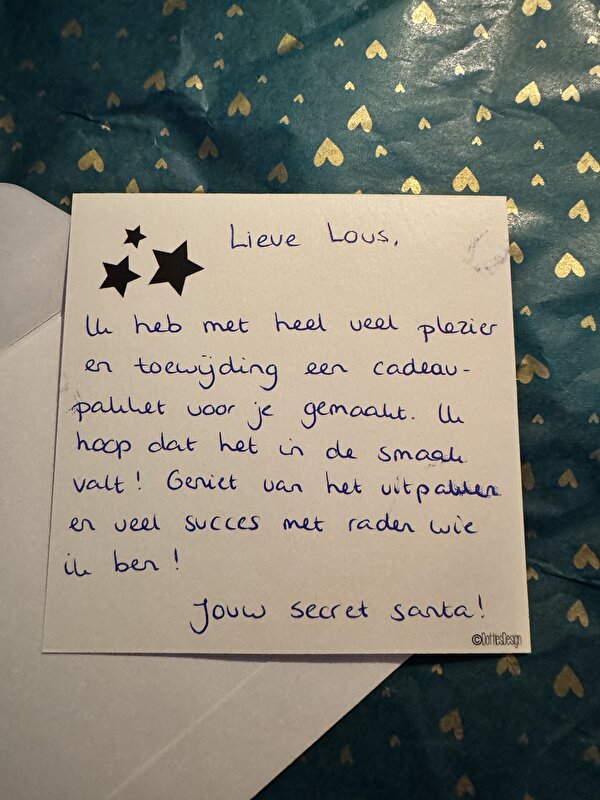 Lieve Lous,
Ik heb met heel veel plezier
en toewijding een cadeau-
pakket voor je gemaakt. Ik
hoop dat het in de smaak
valt! Geniet van het uitpakken
en veel succes met raden wie
ik ben!
Jouw secret santa!
©DottiesDesign